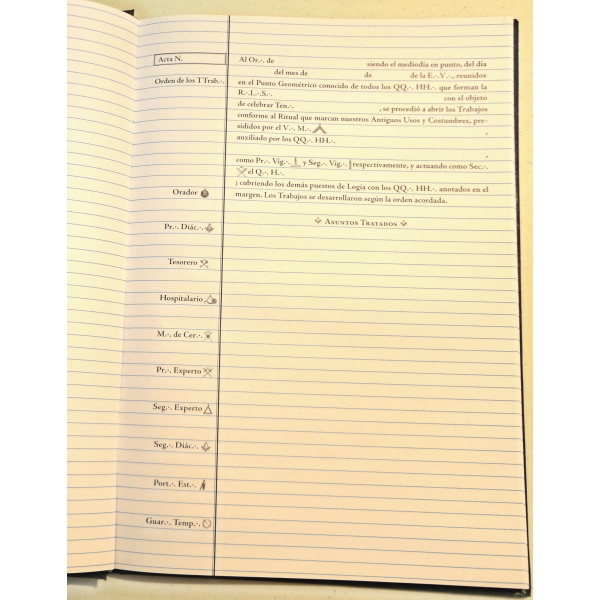 Acta N.
Orden de los TTrab.·.
Al Or.·. de siendo el mediodía en punto, del día
del mes de de de la E.·.V.·., reunidos
en el Punto Geométrico conocido de todos los QQ.·. HH.·. que forman la
R.·.L.·.S.·. con el objeto
de celebrar Ten.·. , se procedió a abrir los Trabajos
conforme al Ritual que marcan nuestros Antiguos Usos y Costumbres, pre-
sididos por el V.·. M.·. ,
auxiliado por los QQ.·. HH.·.
,
como Pr.·. Vig.·. y Seg.·. Vig.·. respectivamente, y actuando como Sec.·.
el Q.·. H.·.
; cubriendo los demás puestos de Logia con los QQ.·. HH.·. anotados en el
margen. Los Trabajos se desarrollaron según la orden acordada.
Asuntos Tratados
Orador
Pr.·. Diác.·.
Tesorero
Hospitalario
M.·. de Cer.·.
Pr.·. Experto
Seg.·. Experto
Seg.·. Diác.·.
Port.·. Est.·.
Guar.·. Temp.·.